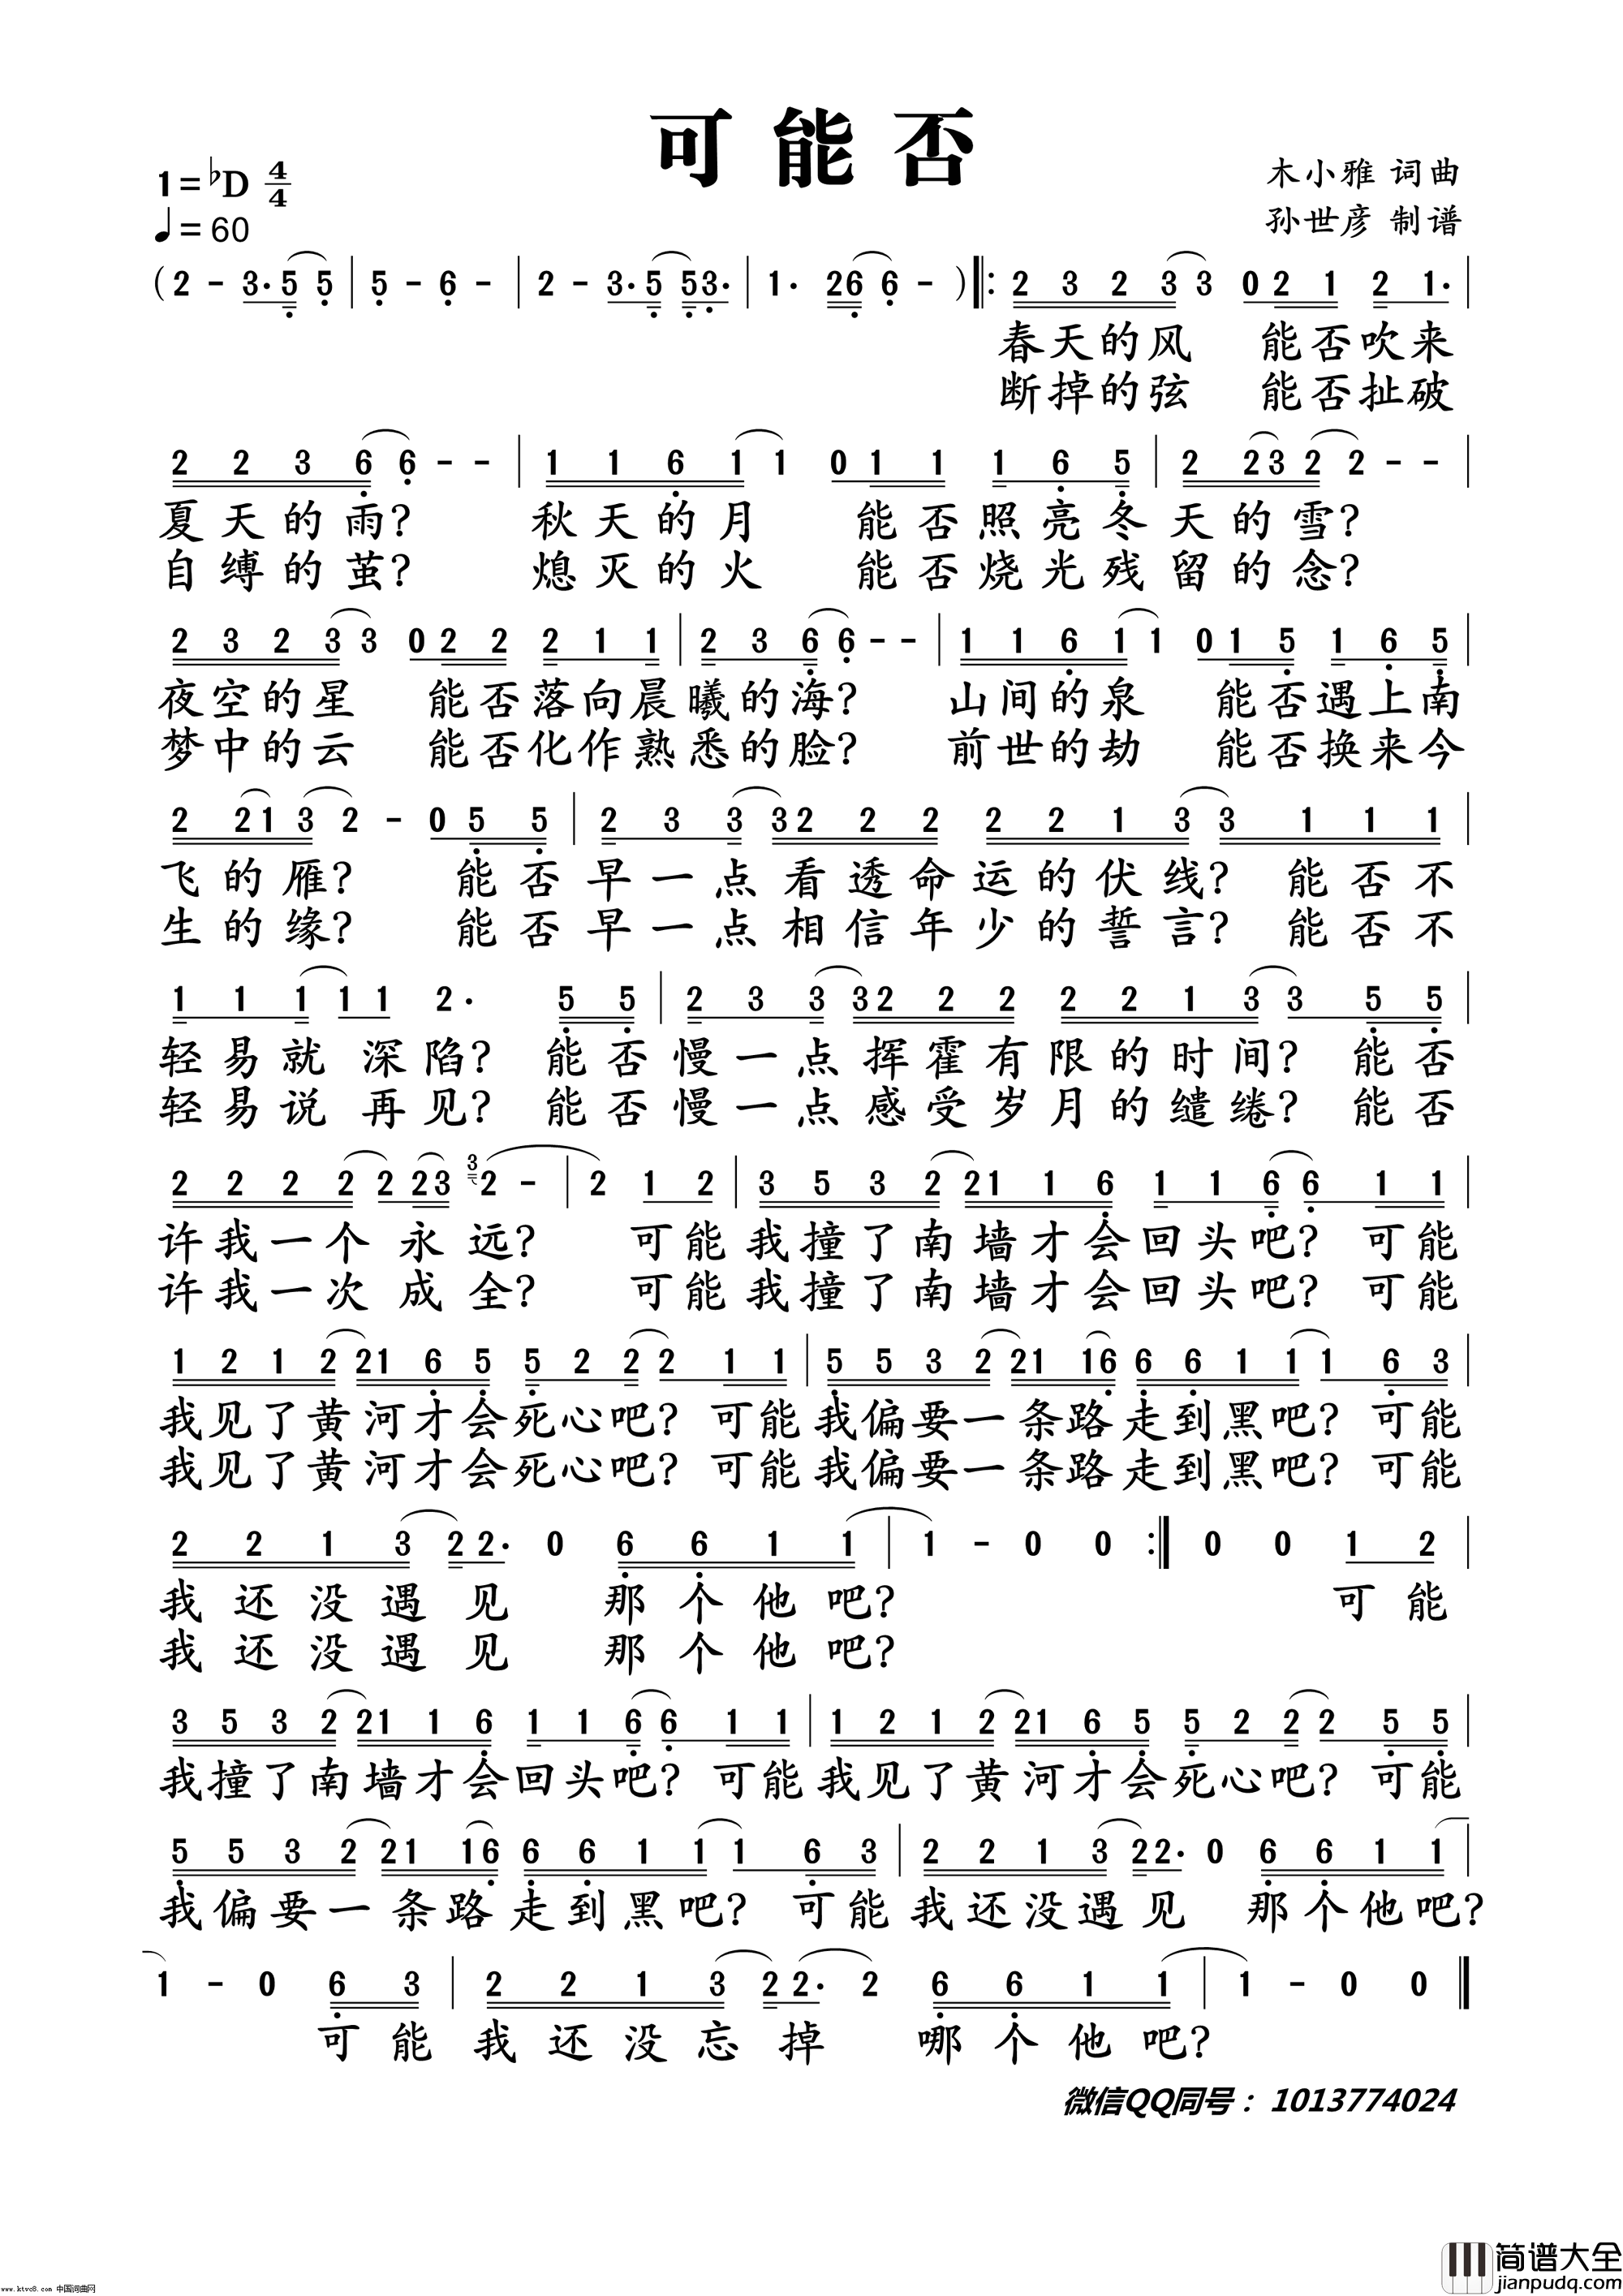 可能否
1=♭D 4/4
木小雅 词曲
♩=60
孙世彦 制谱
( 2 - 3. 5 5 | 5 - 6 - | 2 - 3. 5 53. | 1. 26 6 - ) ‖: 2 3 2 3 3 0 2 1 2 1. |
春天的风 能否吹来
断掉的弦 能否扯破
2 2 3 6 6 - - | 1 1 6 1 1 0 1 1 1 6 5 | 2 23 2 2 - - |
夏天的雨? 秋天的月 能否照亮冬天的雪?
自缚的茧? 熄灭的火 能否烧光残留的念?
2 3 2 3 3 0 2 2 2 1 1 | 2 3 6 6 - - | 1 1 6 1 1 0 1 5 1 6 5 |
夜空的星 能否落向晨曦的海? 山间的泉 能否遇上南
梦中的云 能否化作熟悉的脸? 前世的劫 能否换来今
2 21 3 2 - 0 5 5 | 2 3 3 32 2 2 2 2 1 3 3 1 1 1 |
飞的雁? 能否早一点看透命运的伏线? 能否不
生的缘? 能否早一点相信年少的誓言? 能否不
1 1 1 1 1 2. 5 5 | 2 3 3 32 2 2 2 2 1 3 3 5 5 |
轻易就深陷? 能否慢一点挥霍有限的时间? 能否
轻易说再见? 能否慢一点感受岁月的缱绻? 能否
2 2 2 2 2 23 3 2 - | 2 1 2 | 3 5 3 2 21 1 6 1 1 6 6 1 1 |
许我一个永远? 可能我撞了南墙才会回头吧? 可能
许我一次成全? 可能我撞了南墙才会回头吧? 可能
1 2 1 2 21 6 5 5 2 2 2 1 1 | 5 5 3 2 21 16 6 6 1 1 1 6 3 |
我见了黄河才会死心吧? 可能我偏要一条路走到黑吧? 可能
我见了黄河才会死心吧? 可能我偏要一条路走到黑吧? 可能
2 2 1 3 2 2. 0 6 6 1 1 | 1 - 0 0 :‖ 0 0 1 2 |
我还没遇见 那个他吧? 可能
我还没遇见 那个他吧?
3 5 3 2 21 1 6 1 1 6 6 1 1 | 1 2 1 2 21 6 5 5 2 2 2 5 5 |
我撞了南墙才会回头吧? 可能我见了黄河才会死心吧? 可能
5 5 3 2 21 16 6 6 1 1 1 6 3 | 2 2 1 3 22. 0 6 6 1 1 |
我偏要一条路走到黑吧? 可能我还没遇见 那个他吧?
1 - 0 6 3 | 2 2 1 3 22. 2 6 6 1 1 | 1 - 0 0 ‖
可能我还没忘掉 哪个他吧?
微信QQ同号: 1013774024
简谱大全
jianpudq.com
www.ktvc8.com 中国词曲网